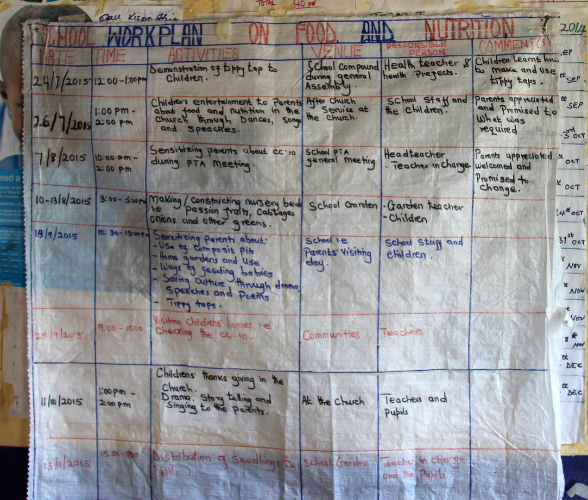 TOTAL 40.00
2014
SCHOOL WORKPLAN ON FOOD AND NUTRITION
DATE TIME ACTIVITIES VENUE RESPONSIBLE PERSON COMMENT(S)
24/7/2015 12:00-1:00pm Demonstration of tippy tap to
Children.
School compound
during general
Assembly
Health teacher &
health Prefects.
Children learnt how
to make and use
tippy taps.
26/7/2015 1:00 pm -
2:00 pm
Children's entertainment to Parents
about food and nutrition in the
Church through Dances, Songs
and Speeches.
After Church
Service at
the church.
School staff and
the children.
Parents appreciated
and Promised to
What was
required
7/8/2015 10:00 am -
2:00 pm
Sensitizing parents about CC:10
during PTA meeting.
School PTA
general meeting
Headteacher
- Teacher in Charge
Parents appreciated
welcomed and
Promised to
change.
10-13/8/2015 3:00 - 5:30pm
Making/Constructing nursery beds
i.e passion fruits, Cabbages
Onions and other greens.
School Garden
- Garden teacher
- Children
18/9/2015
Sensitizing Parents about:
- Use of Composit pit
- Home gardens and Use
- Ways of feeding babies
- Saving culture through drama,
Speeches and Poems
- Tippy taps.
School i.e
Parents' Visiting
day.
School Staff and
children.
25/9/2015 9:00 - 15:00
Visiting Childrens' homes i.e
Checking the CC:10.
Communities
Teachers
11/10/2015 1:00pm -
2:00 pm
Childrens' thanks giving in the
Church.
Drama, Story telling and
Singing to the Parents.
At the Church
Teachers and
Pupils
Distribution of Seedlings to
Pupils
School Garden
Teacher in charge
and the Pupils
SEP
SEP
OCT
OCT
OCT
31st OCT
NOV
NOV
NOV
DEC
DEC